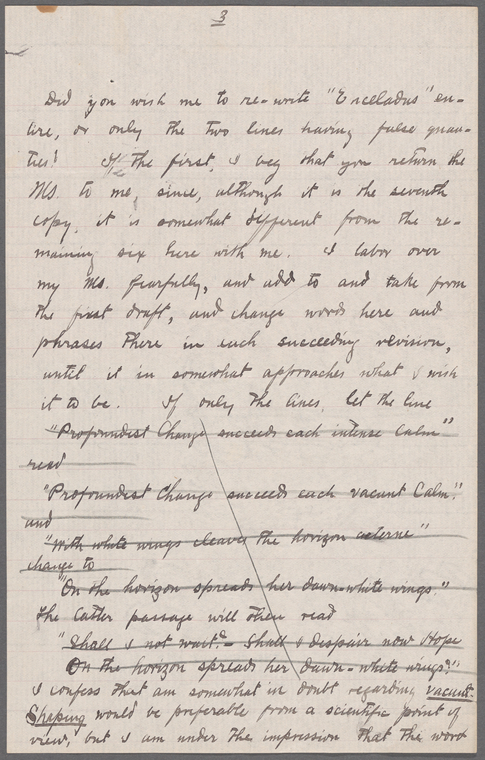 3
Did you wish me to re-write "Enceladus" en-
tire, or only the two lines having false quan-
ties? If the first, I beg that you return the
MS. to me, since, although it is the seventh
copy, it is somewhat different from the re-
maining six here with me. I labor over
my MS. fearfully, and add to and take from
the first draft, and change words here and
phrases there in each succeeding revision,
until it in somewhat approaches what I wish
it to be. If only the lines, let the line
"Profoundest Change succeeds each intense Calm"
read
"Profoundest Change succeeds each vacant Calm."
and
"With white wings cleaves the horizon eterne"
change to
"On the horizon spreads her dawn-white wings."
The latter passage will then read
"Shall I not wait? - Shall I despair now Hope
On the horizon spreads her dawn-white wings?"
I confess that am somewhat in doubt regarding vacant.
would be preferable from a scientific point of
view, but I am under the impression that the word